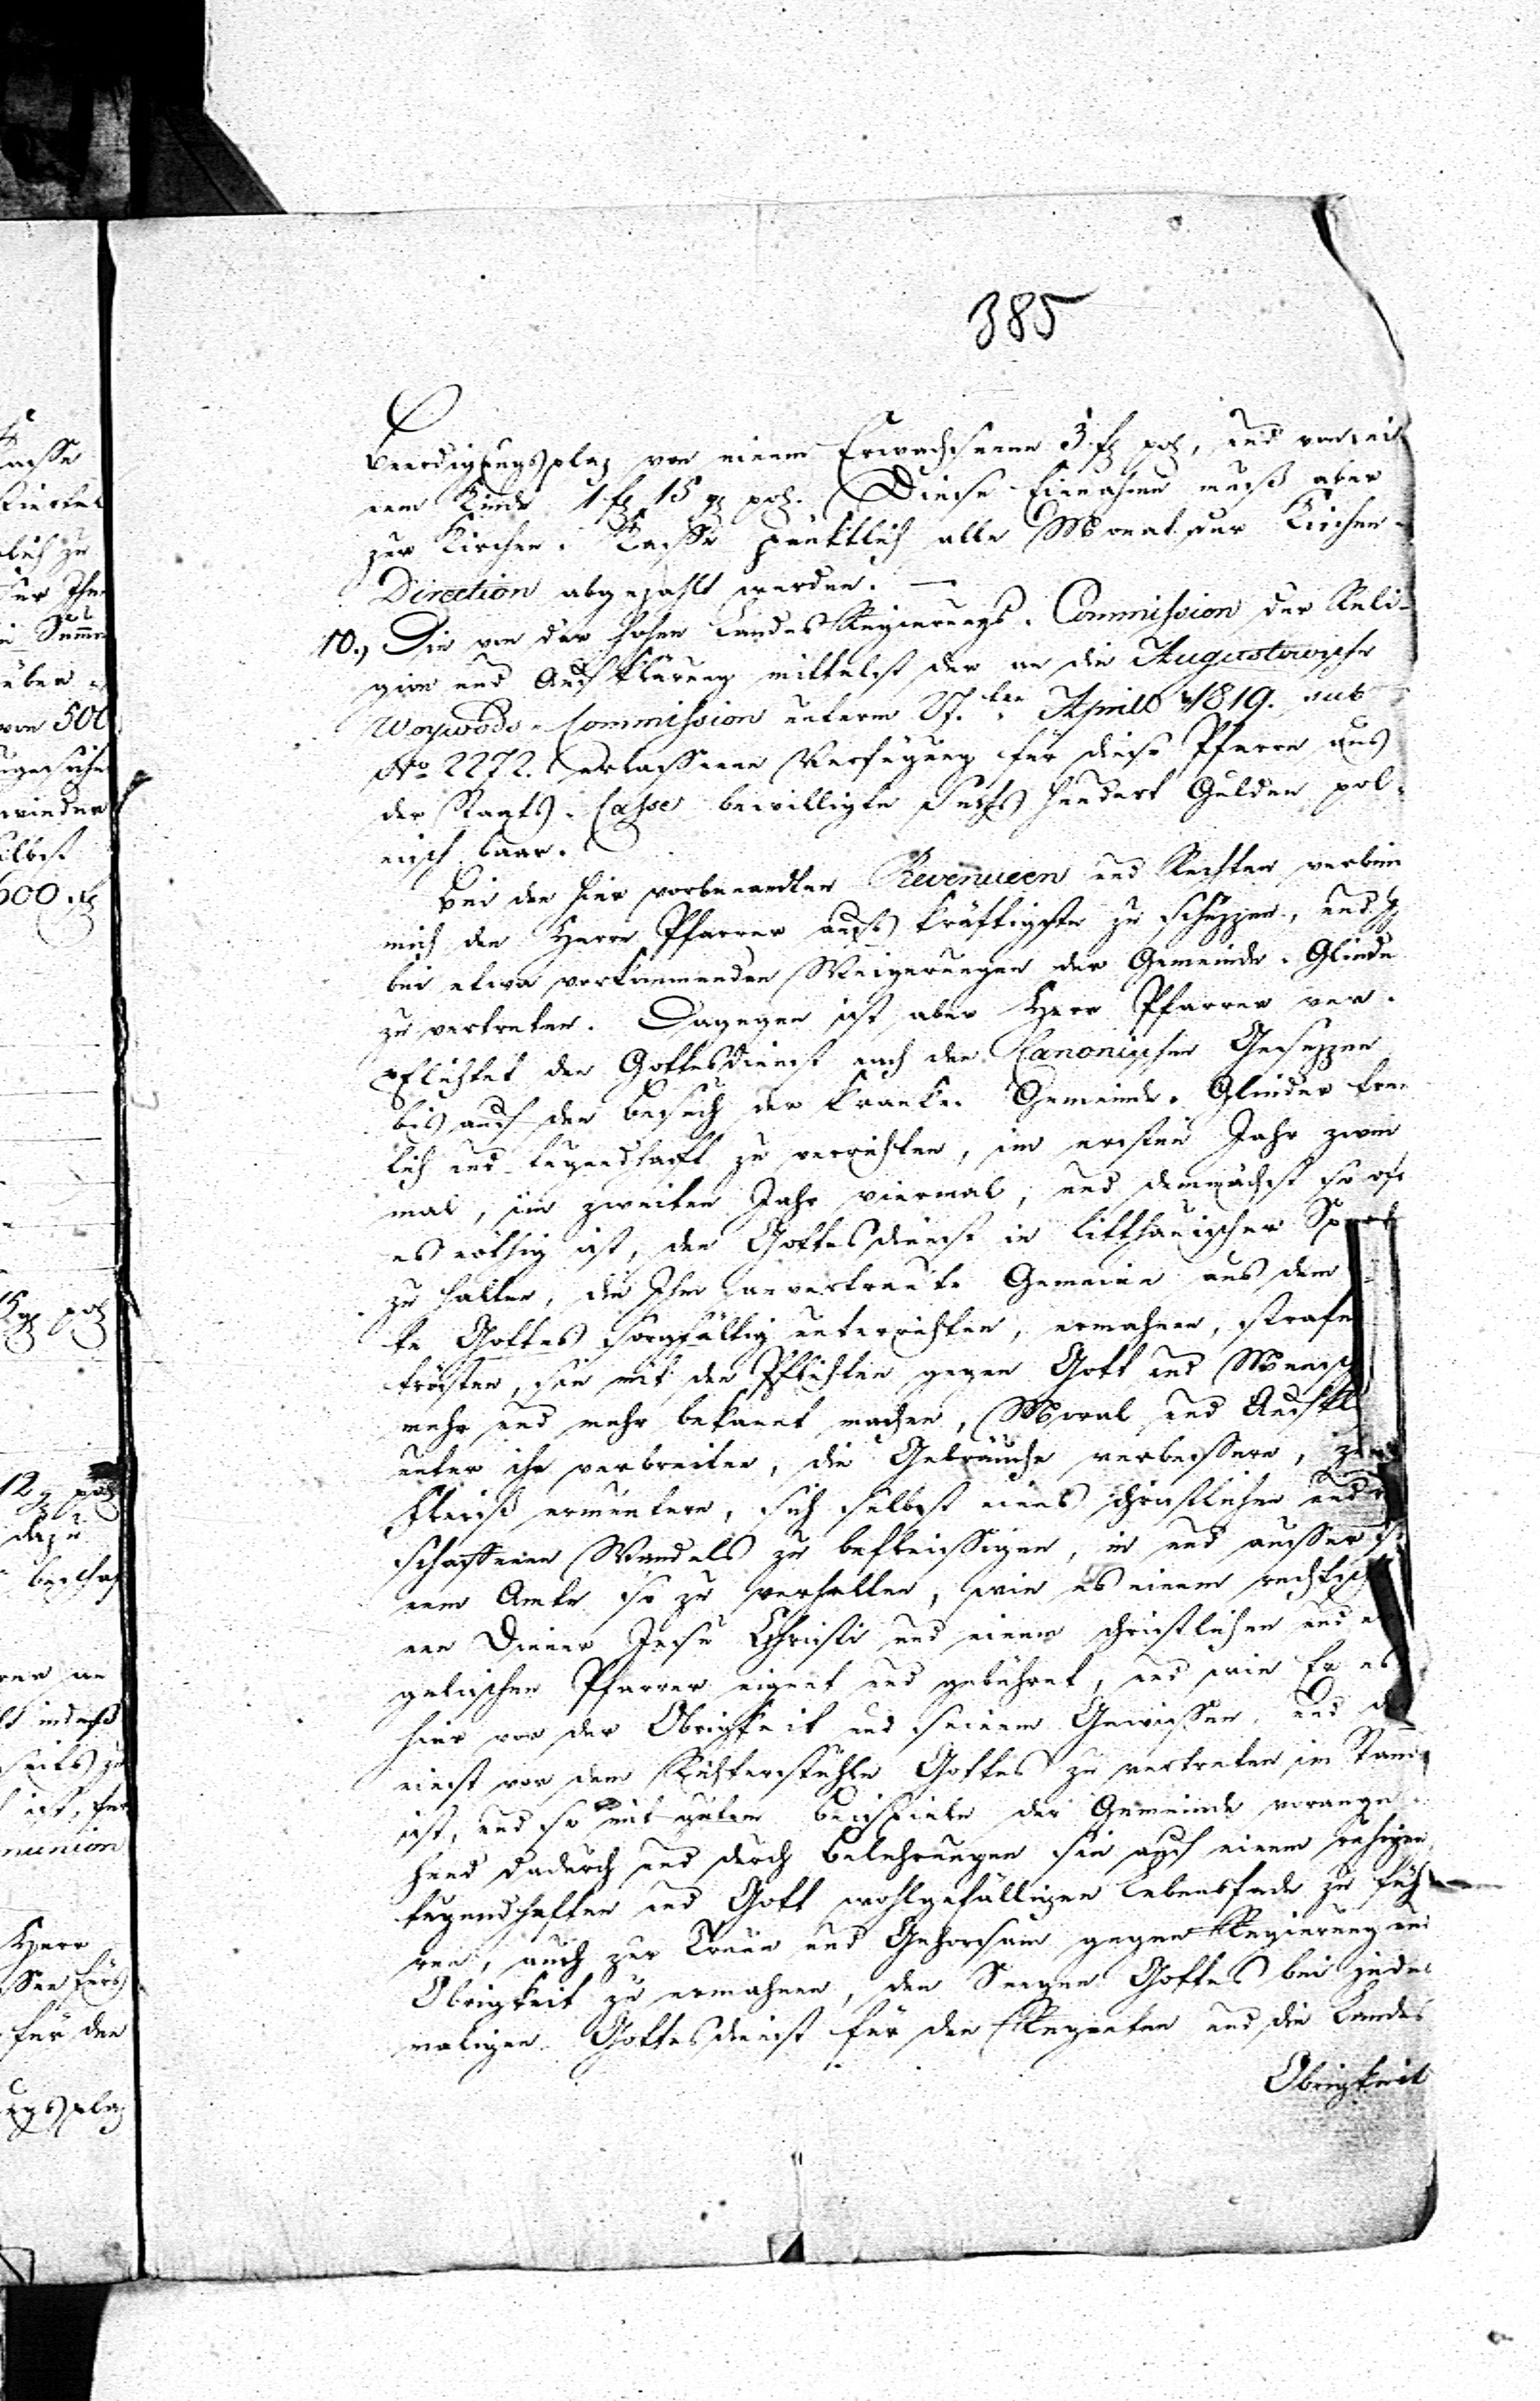 385
Beerdigungsplaz von einem Erwachsenen 3 f pol, und von ei-
nem Kinde 1 f 15 g pol. Diese Einnahme muß aber
zur Kirchen-Kasse pünktlich alle Monat zur Kirchen-
Direction abgezahlt werden. —
10., Die von der hohen Landes Regierungs-Commission der Reli-
gion und Aufklärung mittelst der an die Augustowische
Woywods-Commission unterm 27.ten April 1819. sub
No 2272. erlassenen Verfügung für diese Pfarre aus
der Staats-Casse bewilligte sechs hundert Gulden pol-
nisch baar.
Bei den hier vorbenandten Revenueen und Rechten verbin
mich den Herrn Pfarrer aufs kräftigste zu schüzzen, und
bei etwa vorkommenden Weigerungen der Gemeinde-Glieder
zu vertreten. Dagegen ist aber Herr Pfarrer ver-
pflichtet den Gottesdienst nach den Canonischen Gesezzen
bis auf den Besuch der kranken Gemeinde-Glieder treu
lich und tugendhaft zu verrichten, im ersten Jahr zwei
mal, im zweiten Jahr viermal, und demnächst so oft
es nöthig ist, den Gottesdienst in litthauischer Sprach
zu halten, die Ihm anvertraute Gemeine aus dem
te Gottes sorgfältig unterrichten, ermahnen, strafen
trösten, sie mit den Pflichten gegen Gott und Mensch
mehr und mehr bekannt machen, Moral und Aufkl
unter ihr verbreiten, die Gebräuche verbessern, zum
Fleiß ermuntern, sich selbst eines christlichen und
schaffenen Wandels zu befleissigen, in und ausser
nem Amte so zu verhalten, wie es einem rechtsch
nen Diener Jesu Christi und einem christlichen und e
gelischen Pfarrer eignet und gebühret, und wie Er es
hier vor der Obrigkeit und seinem Gewissen, und d
einst vor dem Richterstuhle Gottes zu vertreten im Stande
ist, und so mit gutem Beispiele der Gemeinde vorange-
hend dadurch und durch Belehrungen sie auf einem ruhigen
tugendhaften und Gott wohlgefälligen Lebenspfade zu füh-
ren, auch zur Treue und Gehorsam gegen Regierung und
Obrigkeit zu ermahnen, den Seegen Gottes bei jedes
maligen Gottesdienst für den Regenten und die Landes
Obrigkeit